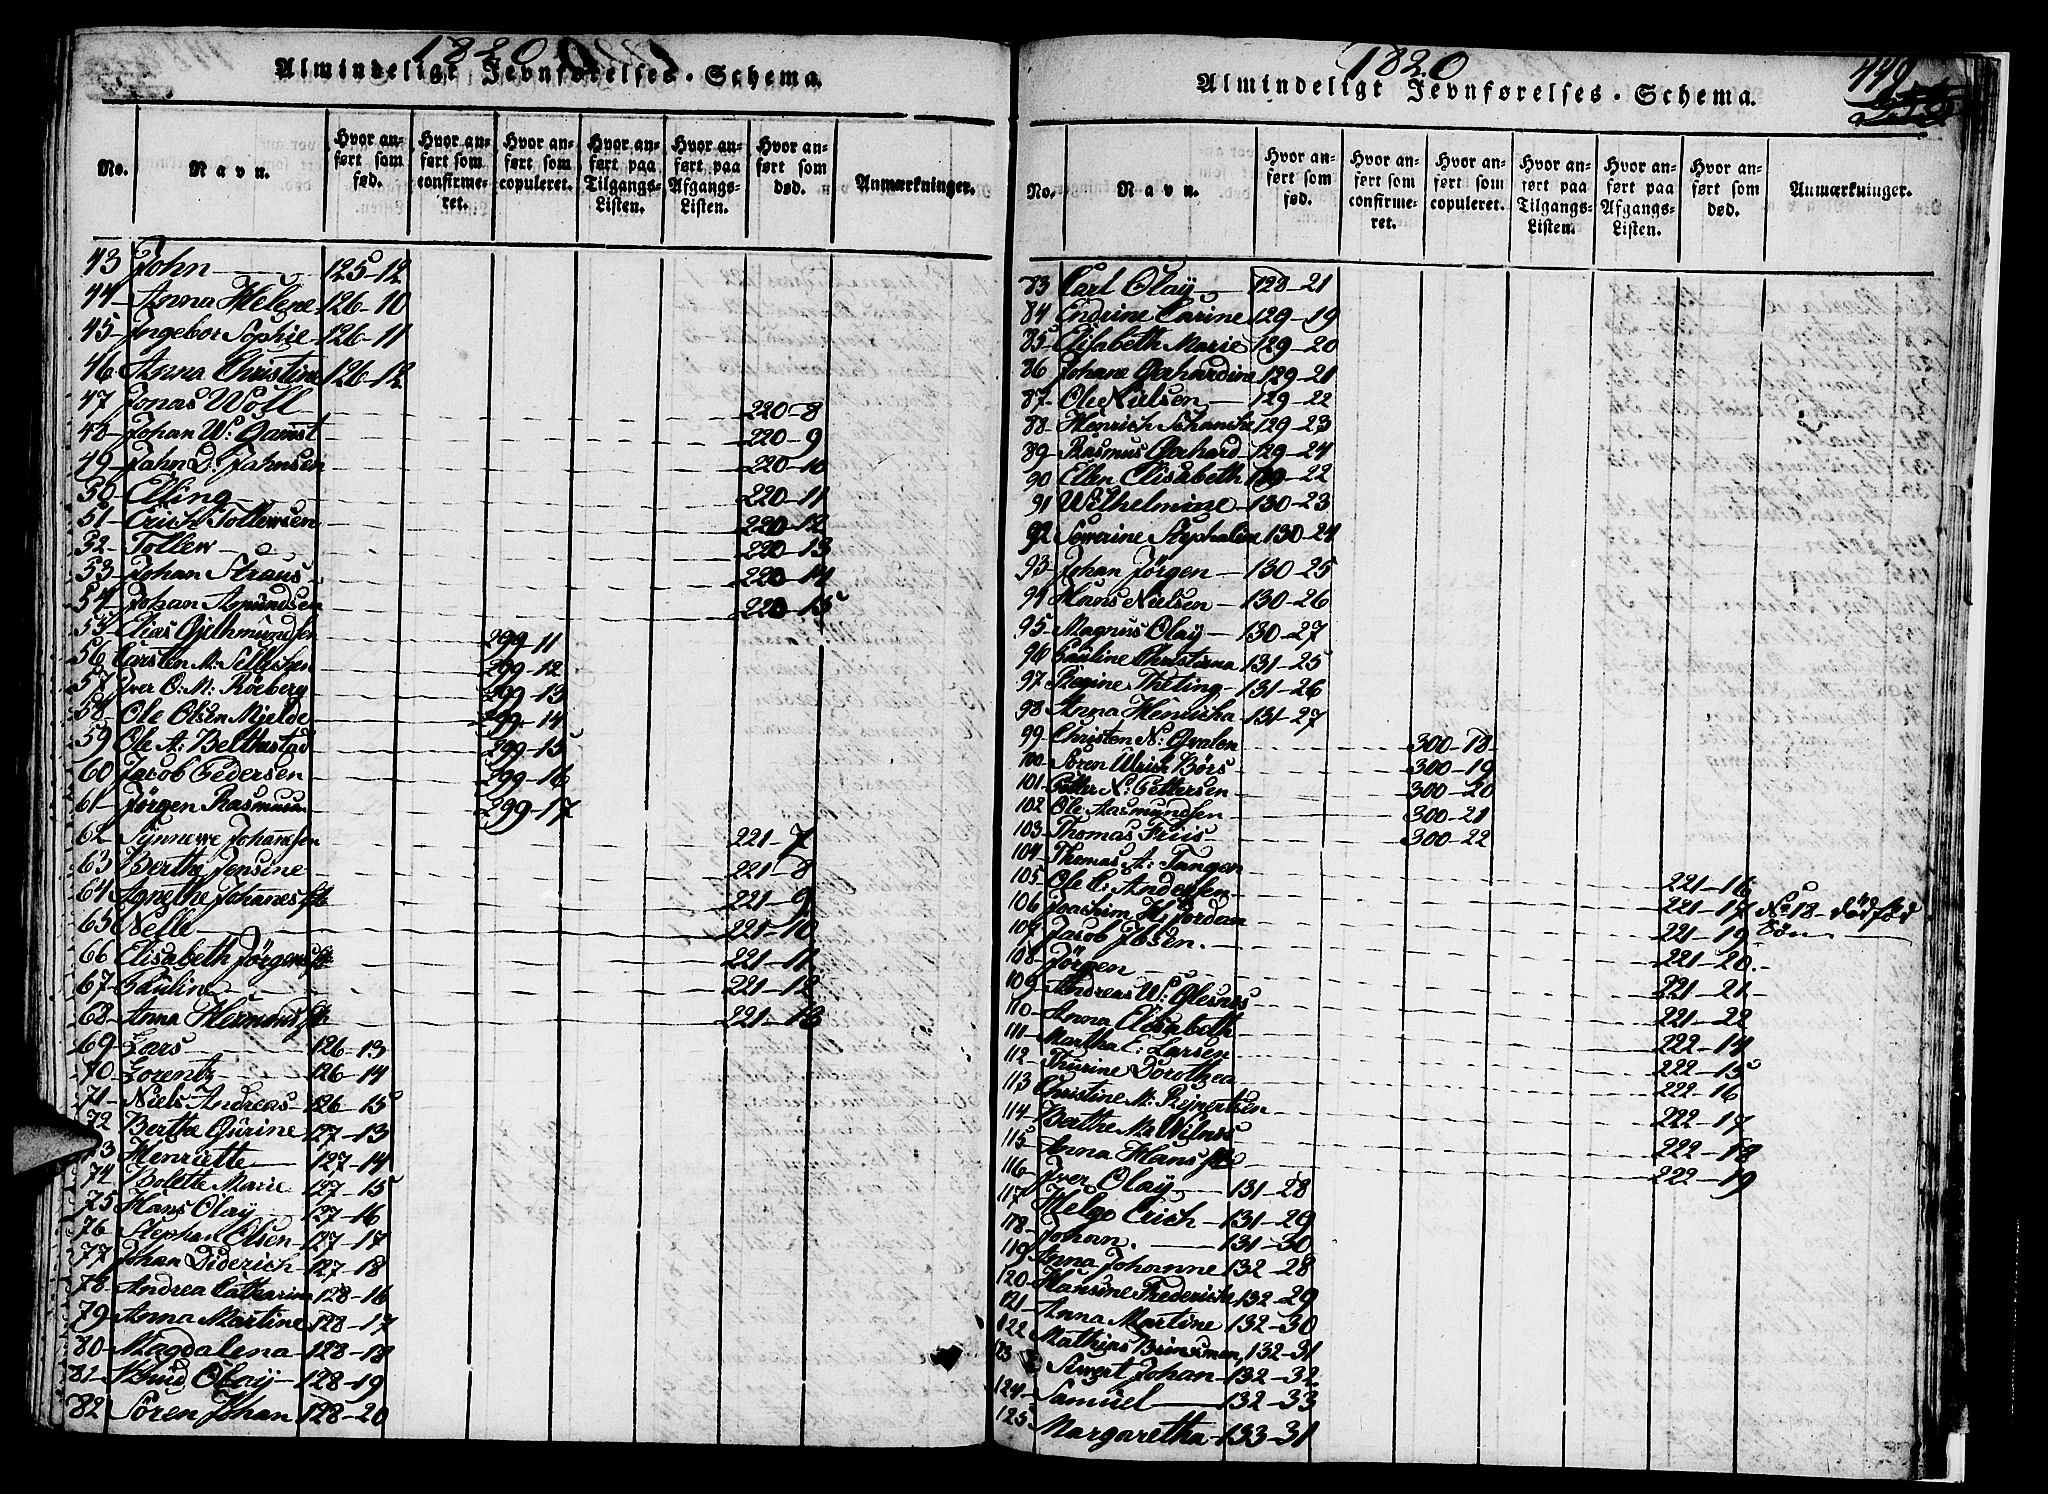 1820
Almindeligt Jevnførelses-Schema.
No. Navn. Hvor anført som fød. Hvor anført som confirmeret. Hvor anført som copuleret. Hvor anført paa Tilgangs-Listen. Hvor anført paa Afgangs-Listen. Hvor anført som død. Anmærkninger.
43 John 125-12
44 Anna Helene 126-10
45 Ingebor Sophie 126-11
46 Anna Christine 126-12
47 Jonas Woll 220-8
48 Johan W: 220-9
49 Jahn D: Jahnsen 220-10
50 Elling 220-11
51 Erich Tollewsen 220-12
52 Tollew 220-13
53 Johan Straus 220-14
54 Johan Amundsen 220-15
55 Elias Gjethmundsen 299-11
56 Carsten M: 299-12
57 Iver O: M: Röeberg 299-13
58 Ole Olsen Mjelde 299-14
59 Ole A: Belthestad 299-15
60 Jacob Pedersen 299-16
61 Jörgen Rasmussen 299-17
62 Synnewe Johannesen 221-7
63 Berthe Jensine 221-8
64 Agnethe Johannes 221-9
65 Nelle 221-10
66 Elisabeth Jörgens 221-11
67 Pauline 221-12
68 Anna 221-13
69 Lars 126-13
70 Lorentz 126-14
71 Niels Andreas 126-15
72 Berthe Gurine 127-13
73 Henriette 127-14
74 Bolette Marie 127-15
75 Hans Olay 127-16
76 Stephan Olsen 127-17
77 Johan Diderich 127-18
78 Andrea Catharina 128-16
79 Anna Martine 128-17
80 Magdalena 128-18
81 Knud Olay 128-19
82 Sören Johan 128-20
1820
449
Almindeligt Jevnførelses-Schema.
No. Navn. Hvor anført som fød. Hvor anført som confirmeret. Hvor anført som copuleret. Hvor anført paa Tilgangs-Listen. Hvor anført paa Afgangs-Listen. Hvor anført som død. Anmærkninger.
83 Carl Olay 128-21
84 Endrine Carine 129-19
85 Elisabeth Marie 129-20
86 Johane Gerhardine 129-21
87 Ole Nielsen 129-22
88 Henrich Schanche 129-23
89 Rasmus Gerhard 129-24
90 Ellen Elisabeth 129-22
91 Wilhelmine 130-23
92 Sewerine Stephaline 130-24
93 Johan Jörgen 130-25
94 Hans Nielsen 130-26
95 Magnus Olay 130-27
96 Pauline Christiana 131-25
97 Regine Theting 131-26
98 Anna Henricha 131-27
99 Christen N: Qvalen 300-18
100 Sören Ulrich Börs 300-19
101 Petter N: Pettersen 300-20
102 Ole Aasmundsen 300-21
103 Thomas Friis 300-22
104 Thomas A: Tangen 221-16
105 Ole C: Andersen 221-17 No 18 dödfød Sön
106 Joachim H: Jordan 221-19
107 Jacob Ibsen 221-20
108 Jörgen 221-21
109 Andreas W: 221-22
110 Anna Elisabeth 222-14
111 Martha E: Larsen 222-15
112 Thurine Dorothea 222-16
113 Christine M: Reinertsen 222-17
114 Berthe M: 222-18
115 Anna Hans 222-19
116 Iver Olay 131-28
117 Helge Erich 131-29
118 Johan 131-30
119 Anna Johanne 132-28
120 Hansine Frederiche 132-29
121 Anna Martine 132-30
122 Mathias 132-31
123 Siwert Johan 132-32
124 Samuel 132-33
125 Margaretha 133-31